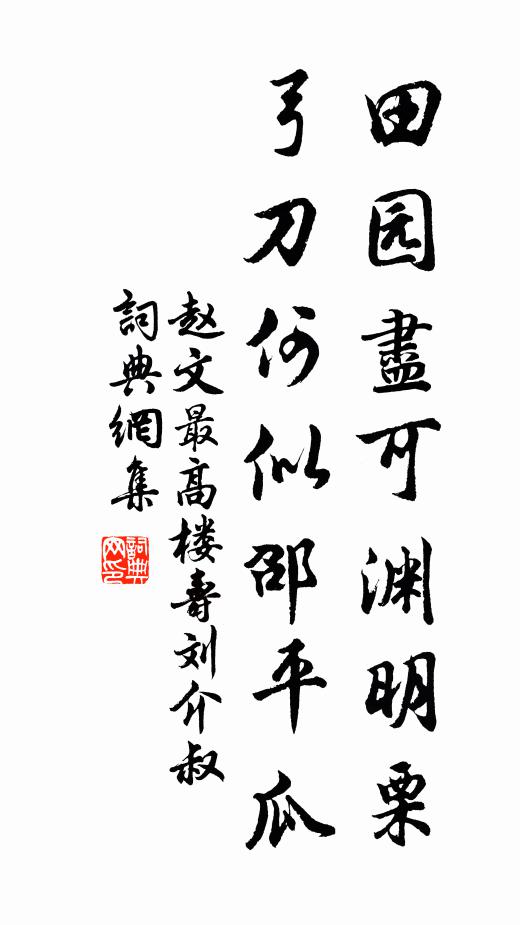 田园盡可渊明栗
弓刀何似邵平瓜
赵文最高楼壽刘介叔
詞典網集
詞典网印